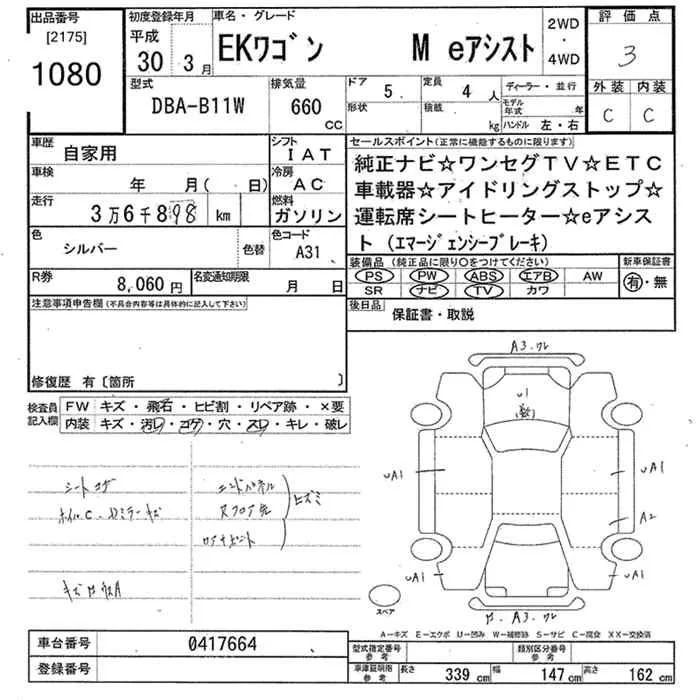 出品番号
[2175]
1080
初度登録年月
平成
30 3月
車名・グレード
EKワゴン M eアシスト
2WD
・
4WD
評価点
3
外装 内装
C C
型式
DBA-B11W
排気量
660
cc
ドア 5
形状
定員 4 人
積載 kg
ディーラー・並行
モデル年式 年
ハンドル 左・右
車歴
自家用
シフト
IAT
車検
年 月( 日)
冷房
AC
走行
3万6千898 km
燃料
ガソリン
色
シルバー
色替
色コード
A31
R券
8,060円
名変通知期限
月 日
セールスポイント(正常に機能するものに限ります)
純正ナビ☆ワンセグTV☆ETC
車載器☆アイドリングストップ☆
運転席シートヒーター☆eアシス
ト(エマージェンシーブレーキ)
装備品 (純正品に限り○をつけてください)
PS PW ABS エアB AW
SR ナビ TV カワ
新車保証書
有・無
後日品
保証書・取説
注意事項申告欄(不具合内容等は具体的に記入して下さい)
修復歴 有〔箇所 〕
検査員
記入欄
FW キズ・飛石・ヒビ割・リペア跡・×要
内装 キズ・汚レ・コゲ・穴・スレ・キレ・破レ
シートコゲ
ホイルC・ドミラーキズ
エンドパネル
Rフロア完
ヒズミ
A3.ワレ
U1
UA1
UA1
A2
UA1
UA1
A3.ワレ
スペア
A－キズ E－エクボ U－凹み W－補修跡 S－サビ C－腐食 XX－交換済
車台番号
0417664
登録番号
型式指定番号
参考
類別区分番号
参考
車庫証明用
参考
長さ 339 cm 幅 147 cm 高さ 162 cm